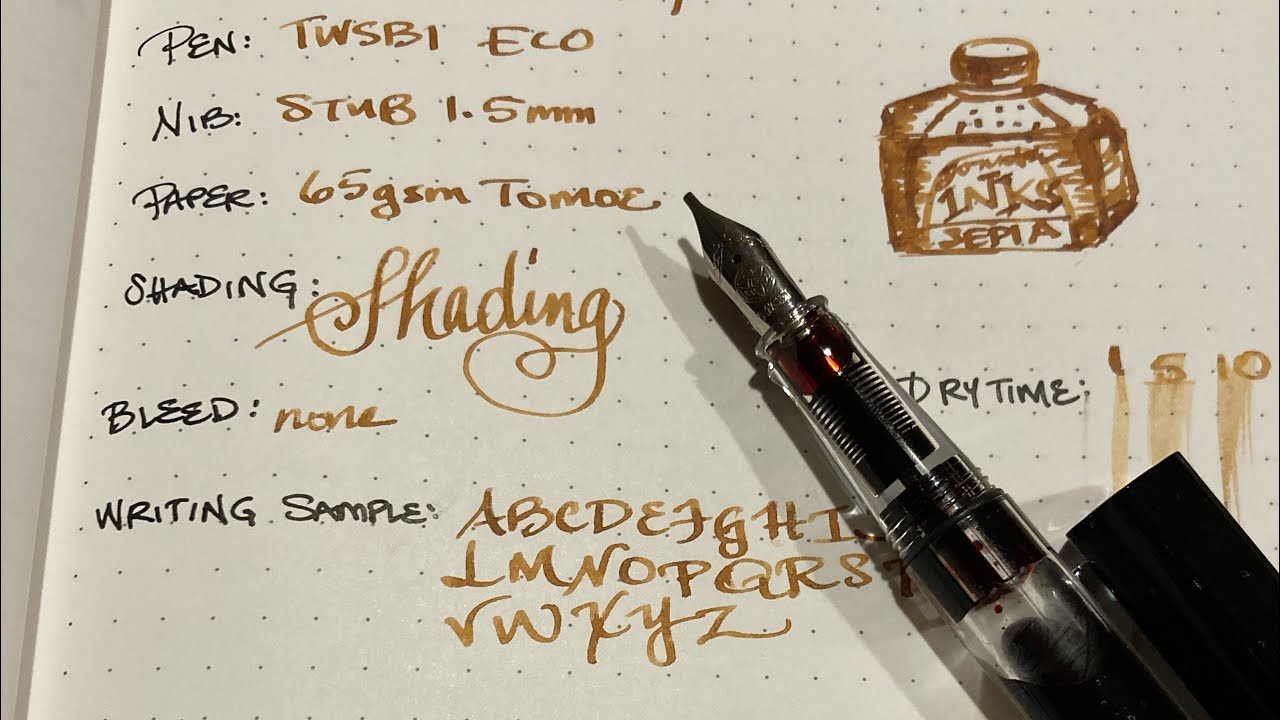 PEN: TWSBI ECO
NIB: STUB 1.5mm
PAPER: 65gsm Tomoe
SHADING: Shading
BLEED: none
WRITING SAMPLE: ABCDEFGHI
LMNOPQRST
VWXYZ
INKS
SEPIA
DRY TIME: 1 5 10